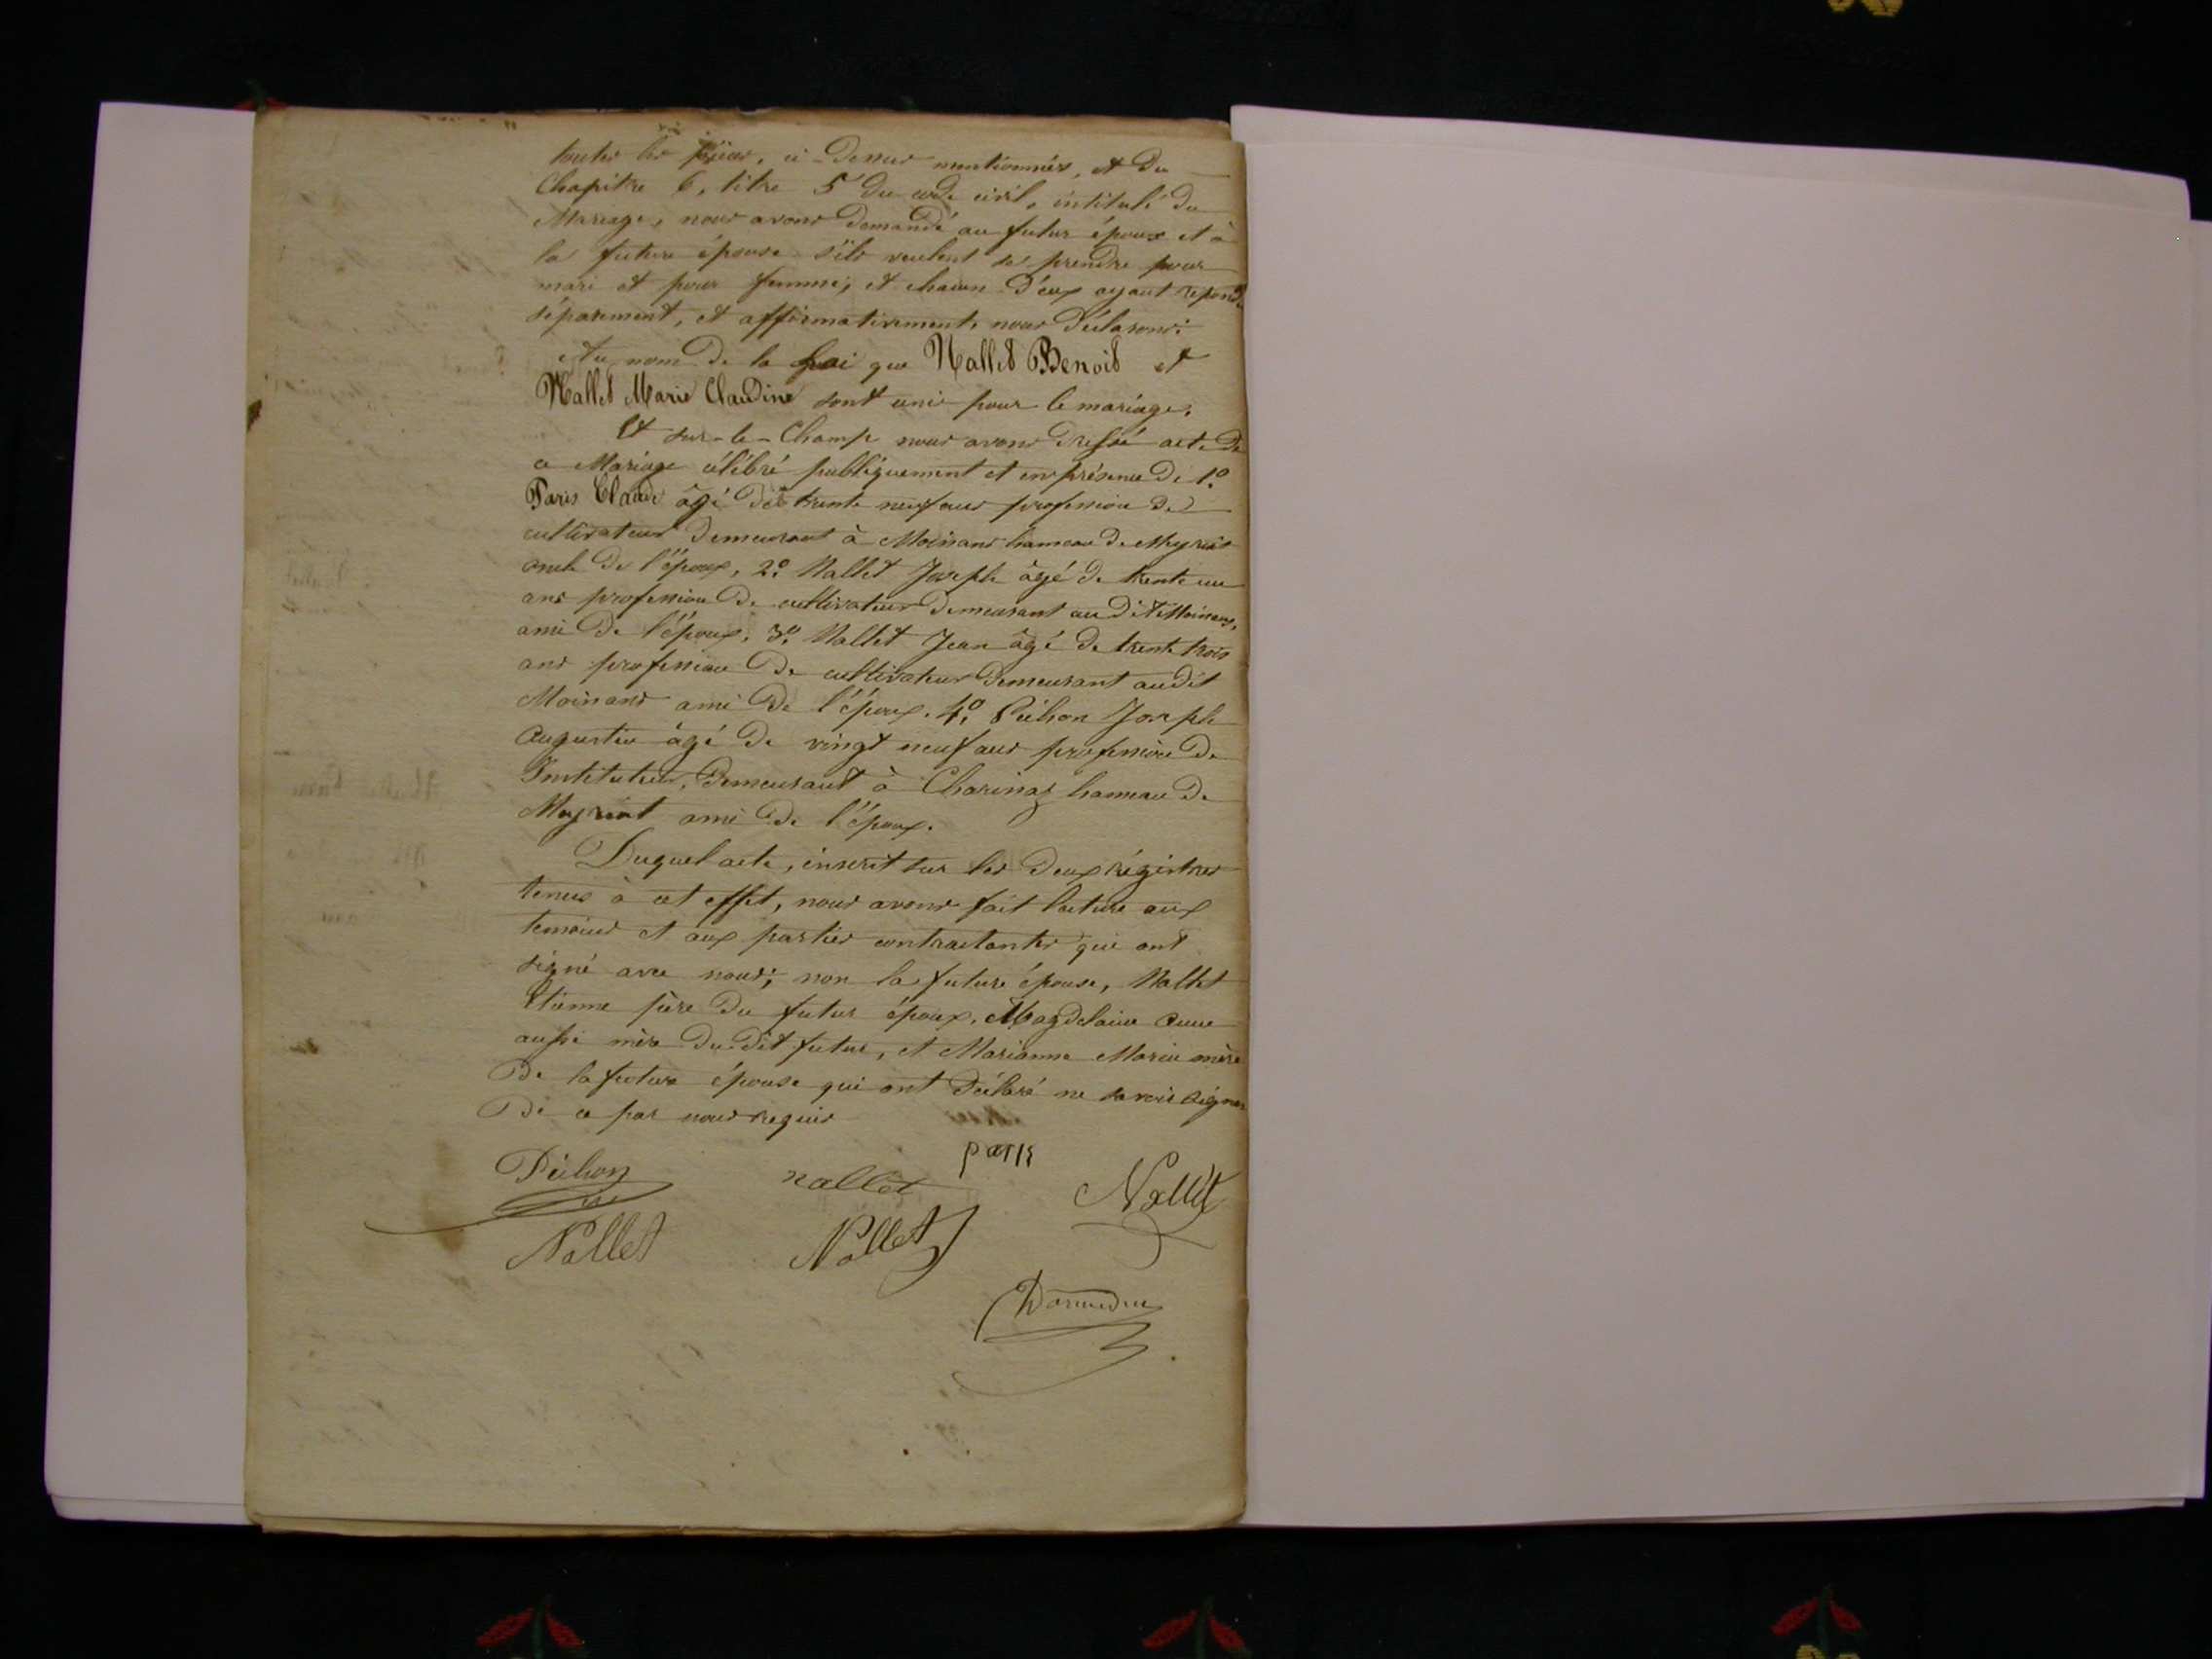 toutes les pièces, ci-dessus mentionnées, et du
Chapitre 6, titre 5 du code civil, intitulé du
Mariage, nous avons demandé au futur époux et à
la future épouse s'ils veulent se prendre pour
mari et pour femme, et chacun d'eux ayant repondu
séparement, et affirmativement, nous déclarons
Au nom de la Loi que Nallet Benoit et
Nallet Marie Claudine sont unis pour le mariage.
Et sur-le-Champ nous avons dressé acte de
ce Mariage célébré publiquement et en présence de 1°
Paris Claude âgé de trente neuf ans profession de
cultivateur demeurant à Moinans hameau de Meyriat
oncle de l'époux, 2° Nallet Joseph âgé de trente un
ans profession de cultivateur demeurant au dit Moinans,
ami de l'époux, 3° Nallet Jean âgé de trente trois
ans profession de cultivateur demeurant audit
Moinans ami de l'époux. 4° Pichon Joseph
Augustin âgé de vingt neuf ans profession de
Instituteur, demeurant à Charinaz hameau de
Meyriat ami de l'époux.
Duquel acte, inscrit sur les deux régistres
tenus à cet effet, nous avons fait lecture aux
temoins et aux parties contractantes qui ont
signé avec nous; non la future épouse, Nallet
Etienne père du futur époux, Magdelaine Anne
aussi mère du dit futur, et Marianne Marie mère
De la future épouse qui ont déclaré ne savoir signer
De ce par nous requis
paris
Pichon nallet Nallet
Nallet Nallet